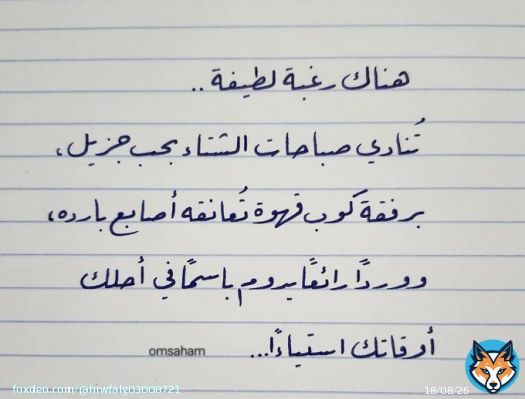 هناك رغبة لطيفة ..
تُنادي صباحات الشتاء بحب جزيل،
برفقة كوب قهوة تُعانقه أصابع بارده،
ووردًا رائعًا يدوم باسمًا في أحلك
أوقاتك استياءًا...
omsaham
foxdeo.com/@hiwfalg03008721
18/08/26